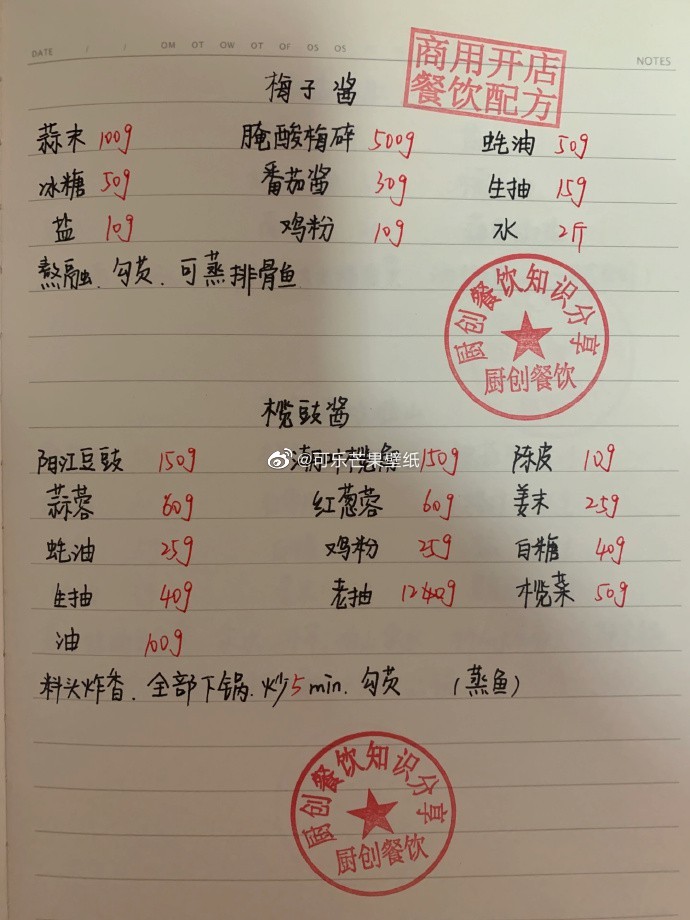 DATE / / OM OT OW OT OF OS OS
NOTES
商用开店
餐饮配方
梅子酱
蒜末 100g 腌酸梅碎 500g 蚝油 50g
冰糖 50g 番茄酱 30g 生抽 15g
盐 10g 鸡粉 10g 水 2斤
熬融、勾芡、可蒸排骨鱼
厨创餐饮知识分享
厨创餐饮
榄豉酱
阳江豆豉 150g 榄角 150g 陈皮 10g
@可乐芒果壁纸
蒜蓉 60g 红葱蓉 60g 姜末 25g
蚝油 25g 鸡粉 25g 白糖 40g
生抽 40g 老抽 榄菜 50g
油 100g
料头炸香、全部下锅、炒5min、勾芡 (蒸鱼)
厨创餐饮知识分享
厨创餐饮